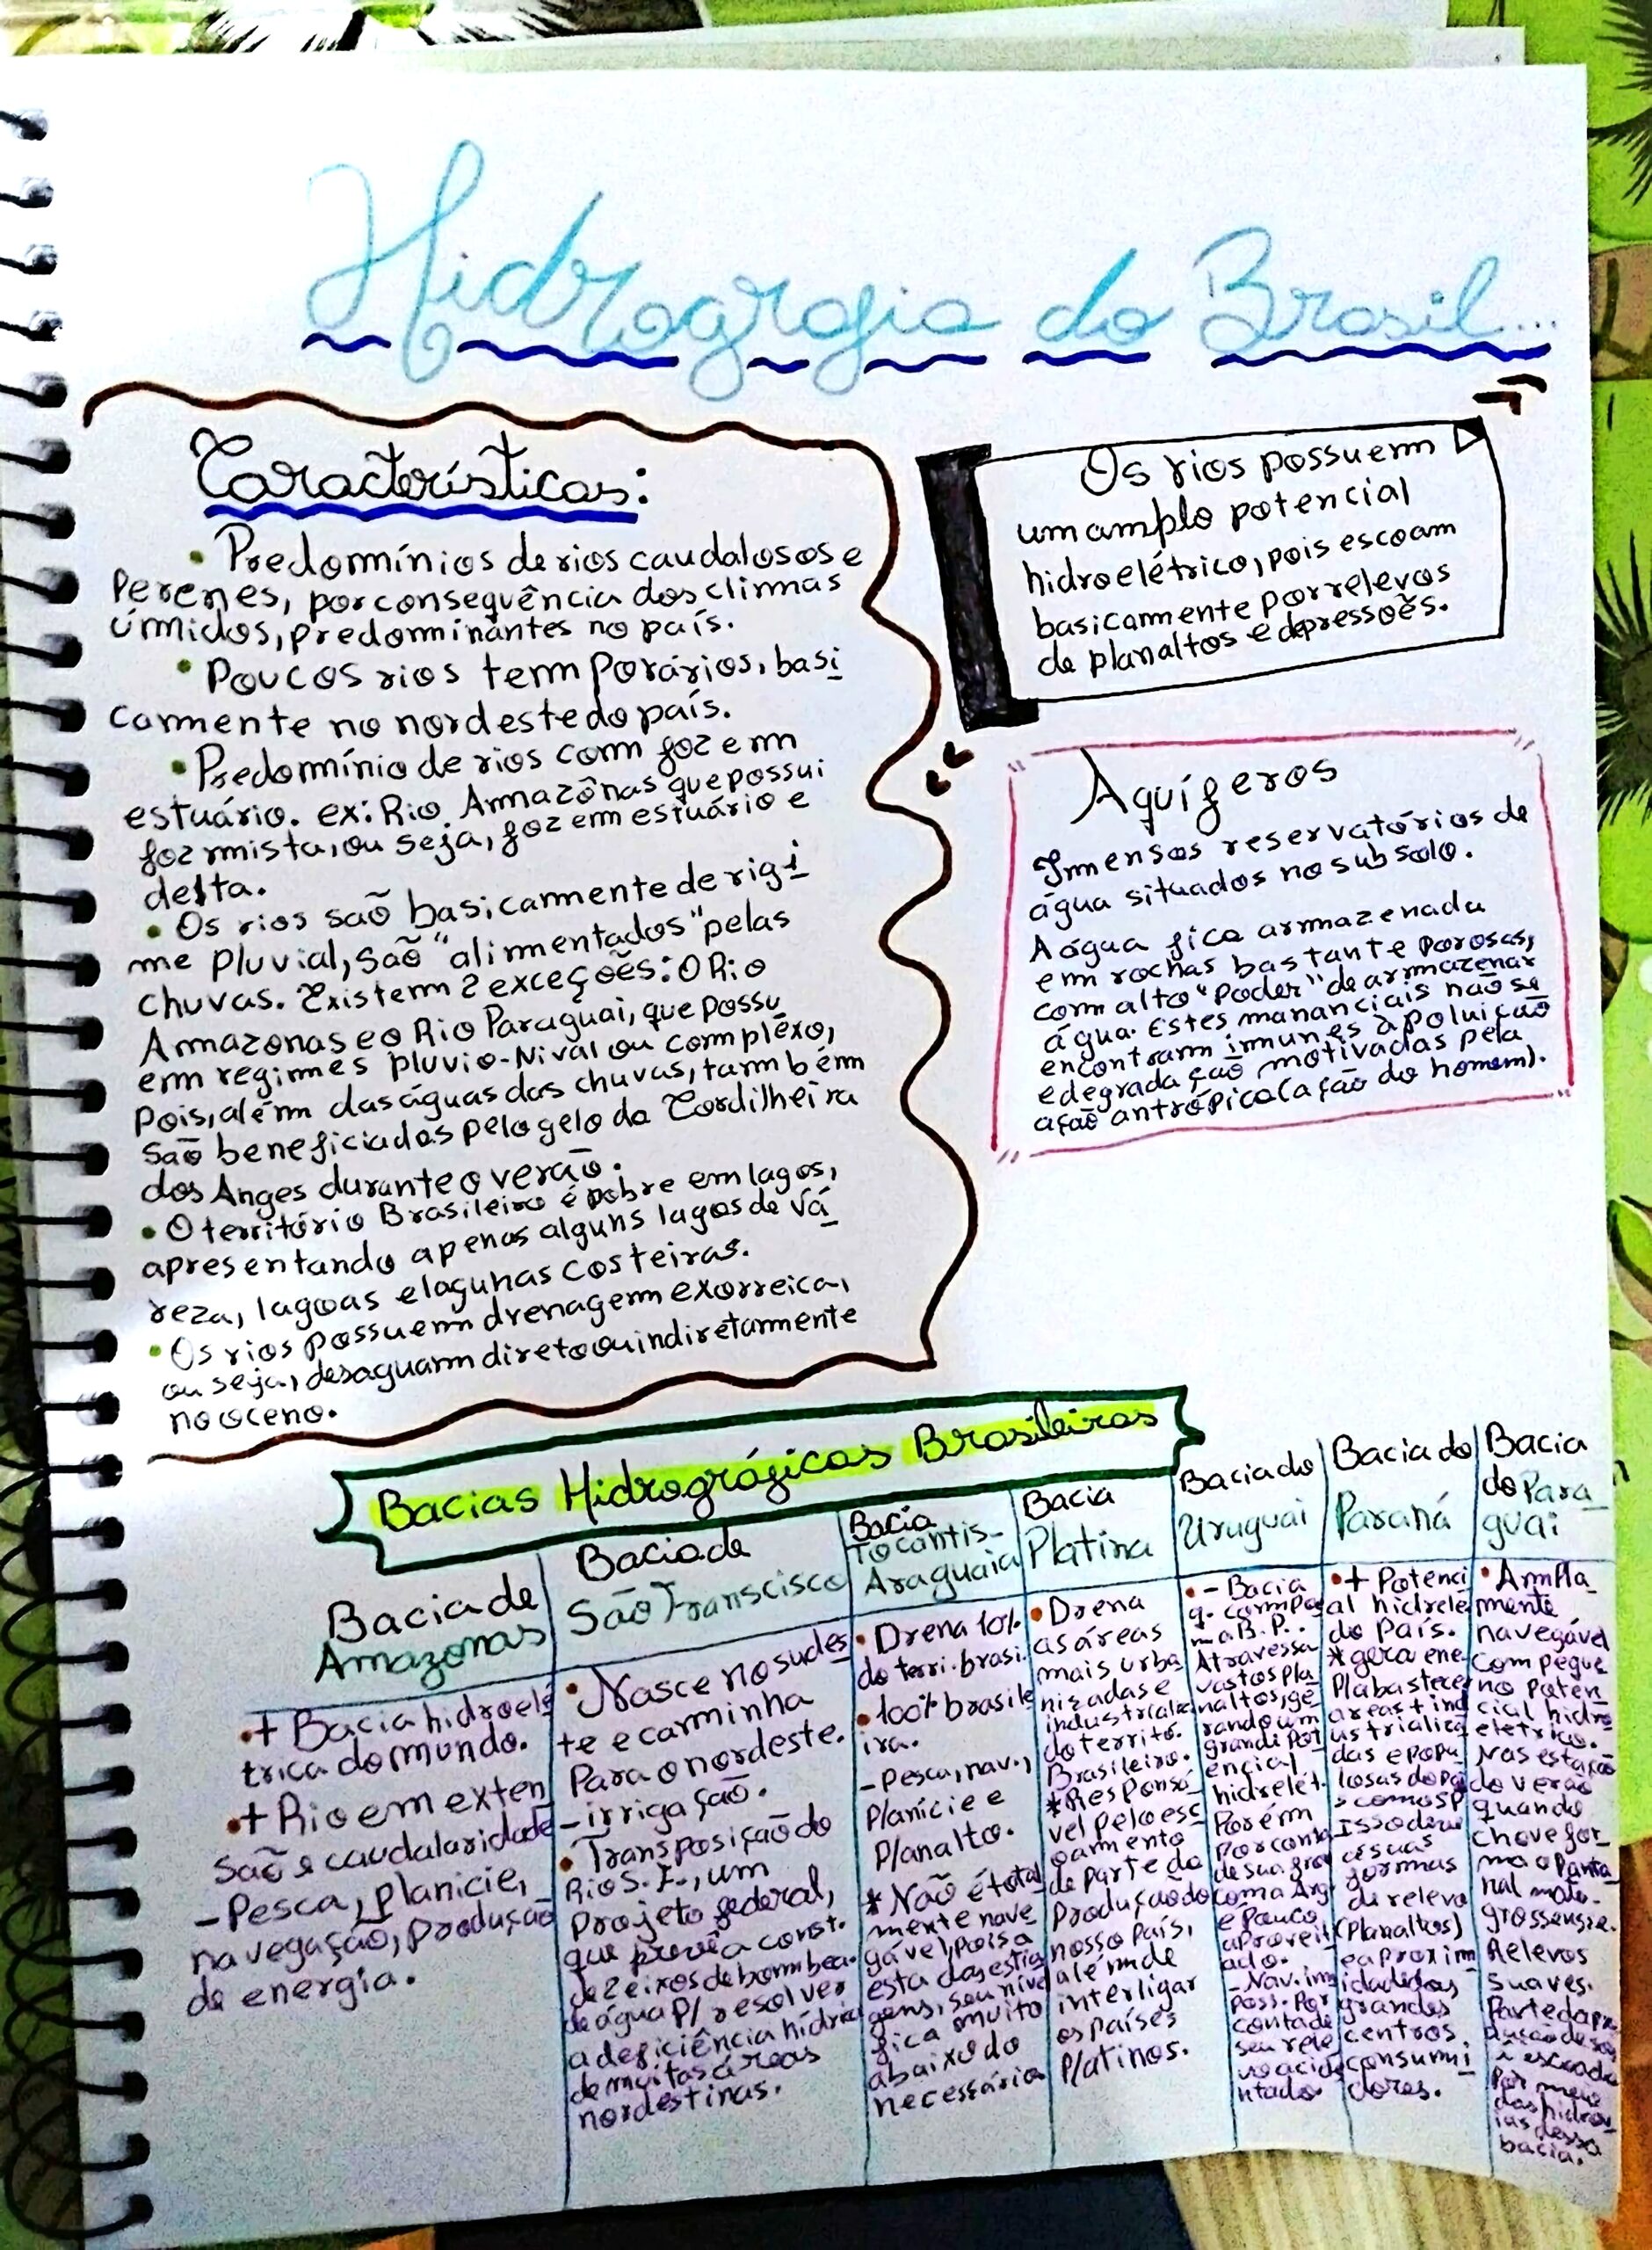 Hidrografia do Brasil...
Características:
• Predomínios de rios caudalosos e
Perenes, por consequência dos climas
úmidos, predominantes no país.
• Poucos rios temporários, basi
camente no nordeste do país.
• Predomínio de rios com foz em
estuário. ex: Rio Amazônas que possui
foz mista, ou seja, foz em estuário e
delta.
• Os rios são basicamente de rigi
me pluvial, são "alimentados" pelas
chuvas. Existem 2 exceções: O Rio
Amazonas e o Rio Paraguai, que possu
em regimes pluvio-Nival ou compléxo,
pois, além das águas das chuvas, também
são beneficiados pelo gelo da Cordilheira
dos Anges durante o verão.
• O território Brasileiro é pobre em lagos,
apresentando apenas alguns lagos de vá
reza, lagoas e lagunas costeiras.
• Os rios possuem drenagem exorreica,
ou seja, desaguam direto ou indiretamente
no oceno.
Os rios possuem
um amplo potencial
hidroelétrico, pois escoam
basicamente por relevos
de planaltos e depressões.
Aquíferos
Imensos reservatórios de
água situados no subsolo.
A água fica armazenada
em rochas bastante porosas,
com alto "poder" de armazenar
água. Estes mananciais não se
encontram imunes à poluição
e degradação motivadas pela
ação antrópica (ação do homem).
Bacias Hidrográficas Brasileiras
Bacia de
Amazonas
• + Bacia hidroelé
trica do mundo.
• + Rio em exten
são e caudalaridade
- Pesca, planicie,
navegação, produção
de energia.
Bacia de
São Franscisco
• Nasce no sudes
te e caminha
Para o nordeste.
- irrigação.
• Transposição do
Rio S. F., um
Projeto federal,
que prevê a const.
de 2 eixos de bombea.
de água p/ resolver
a deficiência hídrica
de muitas áreas
nordestinas.
Bacia
Tocantis-
Araguaia
• Drena 10%
do terri. brasi.
• 100% brasile
ira.
- Pesca, nav.,
Planície e
Planalto.
* Não é total
mente nave
gável, pois a
esta das estia
gens, seu nível
fica muito
abaixo do
necessário
Bacia
Platina
• Drena
as áreas
mais urba
nizadas e
industrializ
do territo.
Brasileiro.
* Responsá
vel pelo esc
oamento
de parte da
Produção do
nosso País,
além de
interligar
os países
Platinos.
Bacia do
Uruguai
• - Bacia
q. compõe
a B. P..
Atravessa
vastos pla
naltos, ge
rando um
grande Pot
encial
hidrelét.
Porém
Por conta
de sua fro
com a Arg
é Pouco
aproveit
ado.
- Nav. im
poss. Por
conta de
seu rele
vo acide
ntado.
Bacia do
Paraná
• + Potenci
al hidrelé
do País.
* gera ene
P/ abastecer
áreas + ind
ustrializa
das e popu
losas do Pa
como SP
Isso deve
às suas
formas
de relevo
(Planaltos)
e a proxim
idade dos
grandes
centros
consumi
dores.
Bacia
do Para
guai
• Ampla
mente
navegável
com peque
no poten
cial hidro
elétrico.
Nas estação
do verão
quando
chove for
ma o Panta
nal mato-
grossense.
Relevos
suaves.
Parte da pro
dução de soj
é escoada
Por meio
das hidrov
ias dessa
bacia.